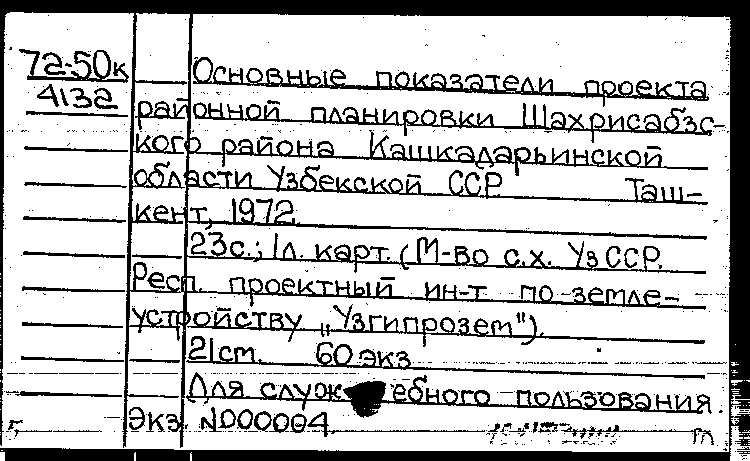 72-50к
413а
Основные показатели проекта
районной планировки Шахрисабзс-
кого района Кашкадарьинской
области Узбекской ССР Таш-
кент, 1972
23с.; 1л. карт. (М-во с.х. УзССР.
Респ. проектный ин-т по земле-
устройству „Узгипрозем").
21см. 60 экз
Для служебного пользования.
Экз. №00004.